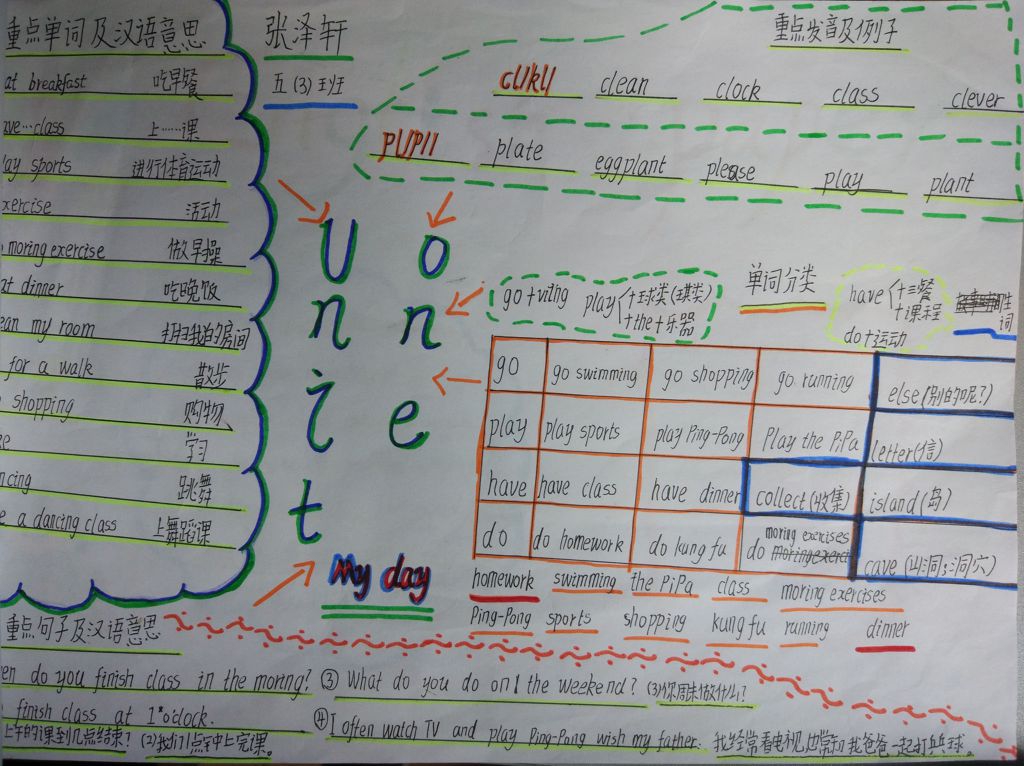 重点单词及汉语意思
at breakfast 吃早餐
ave…class 上……课
lay sports 进行体育运动
xercise 活动
moring exercise 做早操
at dinner 吃晚饭
ean my room 打扫我的房间
for a walk 散步
shopping 购物
学习
ncing 跳舞
e a dancing class 上舞蹈课
张泽轩
五(3)班
重点发音及例子
cl/kl/ clean clock class clever
pl/pl/ plate eggplant please play plant
Unit
one
My day
单词分类
go+ving
play +球类(棋类)
+the+乐器
have +三餐
+课程
do+运动
生词
go go swimming go shopping go running else(别的呢?)
play play sports play Ping-Pong Play the PiPa letter(信)
have have class have dinner collect(收集) island(岛)
do do homework do kung fu do moring exercises cave(山洞;洞穴)
homework swimming the PiPa class moring exercises
Ping-Pong sports shopping kung fu running dinner
重点句子及汉语意思
en do you finish class in the moring?
finish class at 1 o'clock.
上午的课到几点结束? (2)我们1点钟上完课。
③ What do you do on the weekend? (3)你周末做什么?
④ I often watch TV and play Ping-Pong wish my father. 我经常看电视,也常和我爸爸一起打乒乓球。